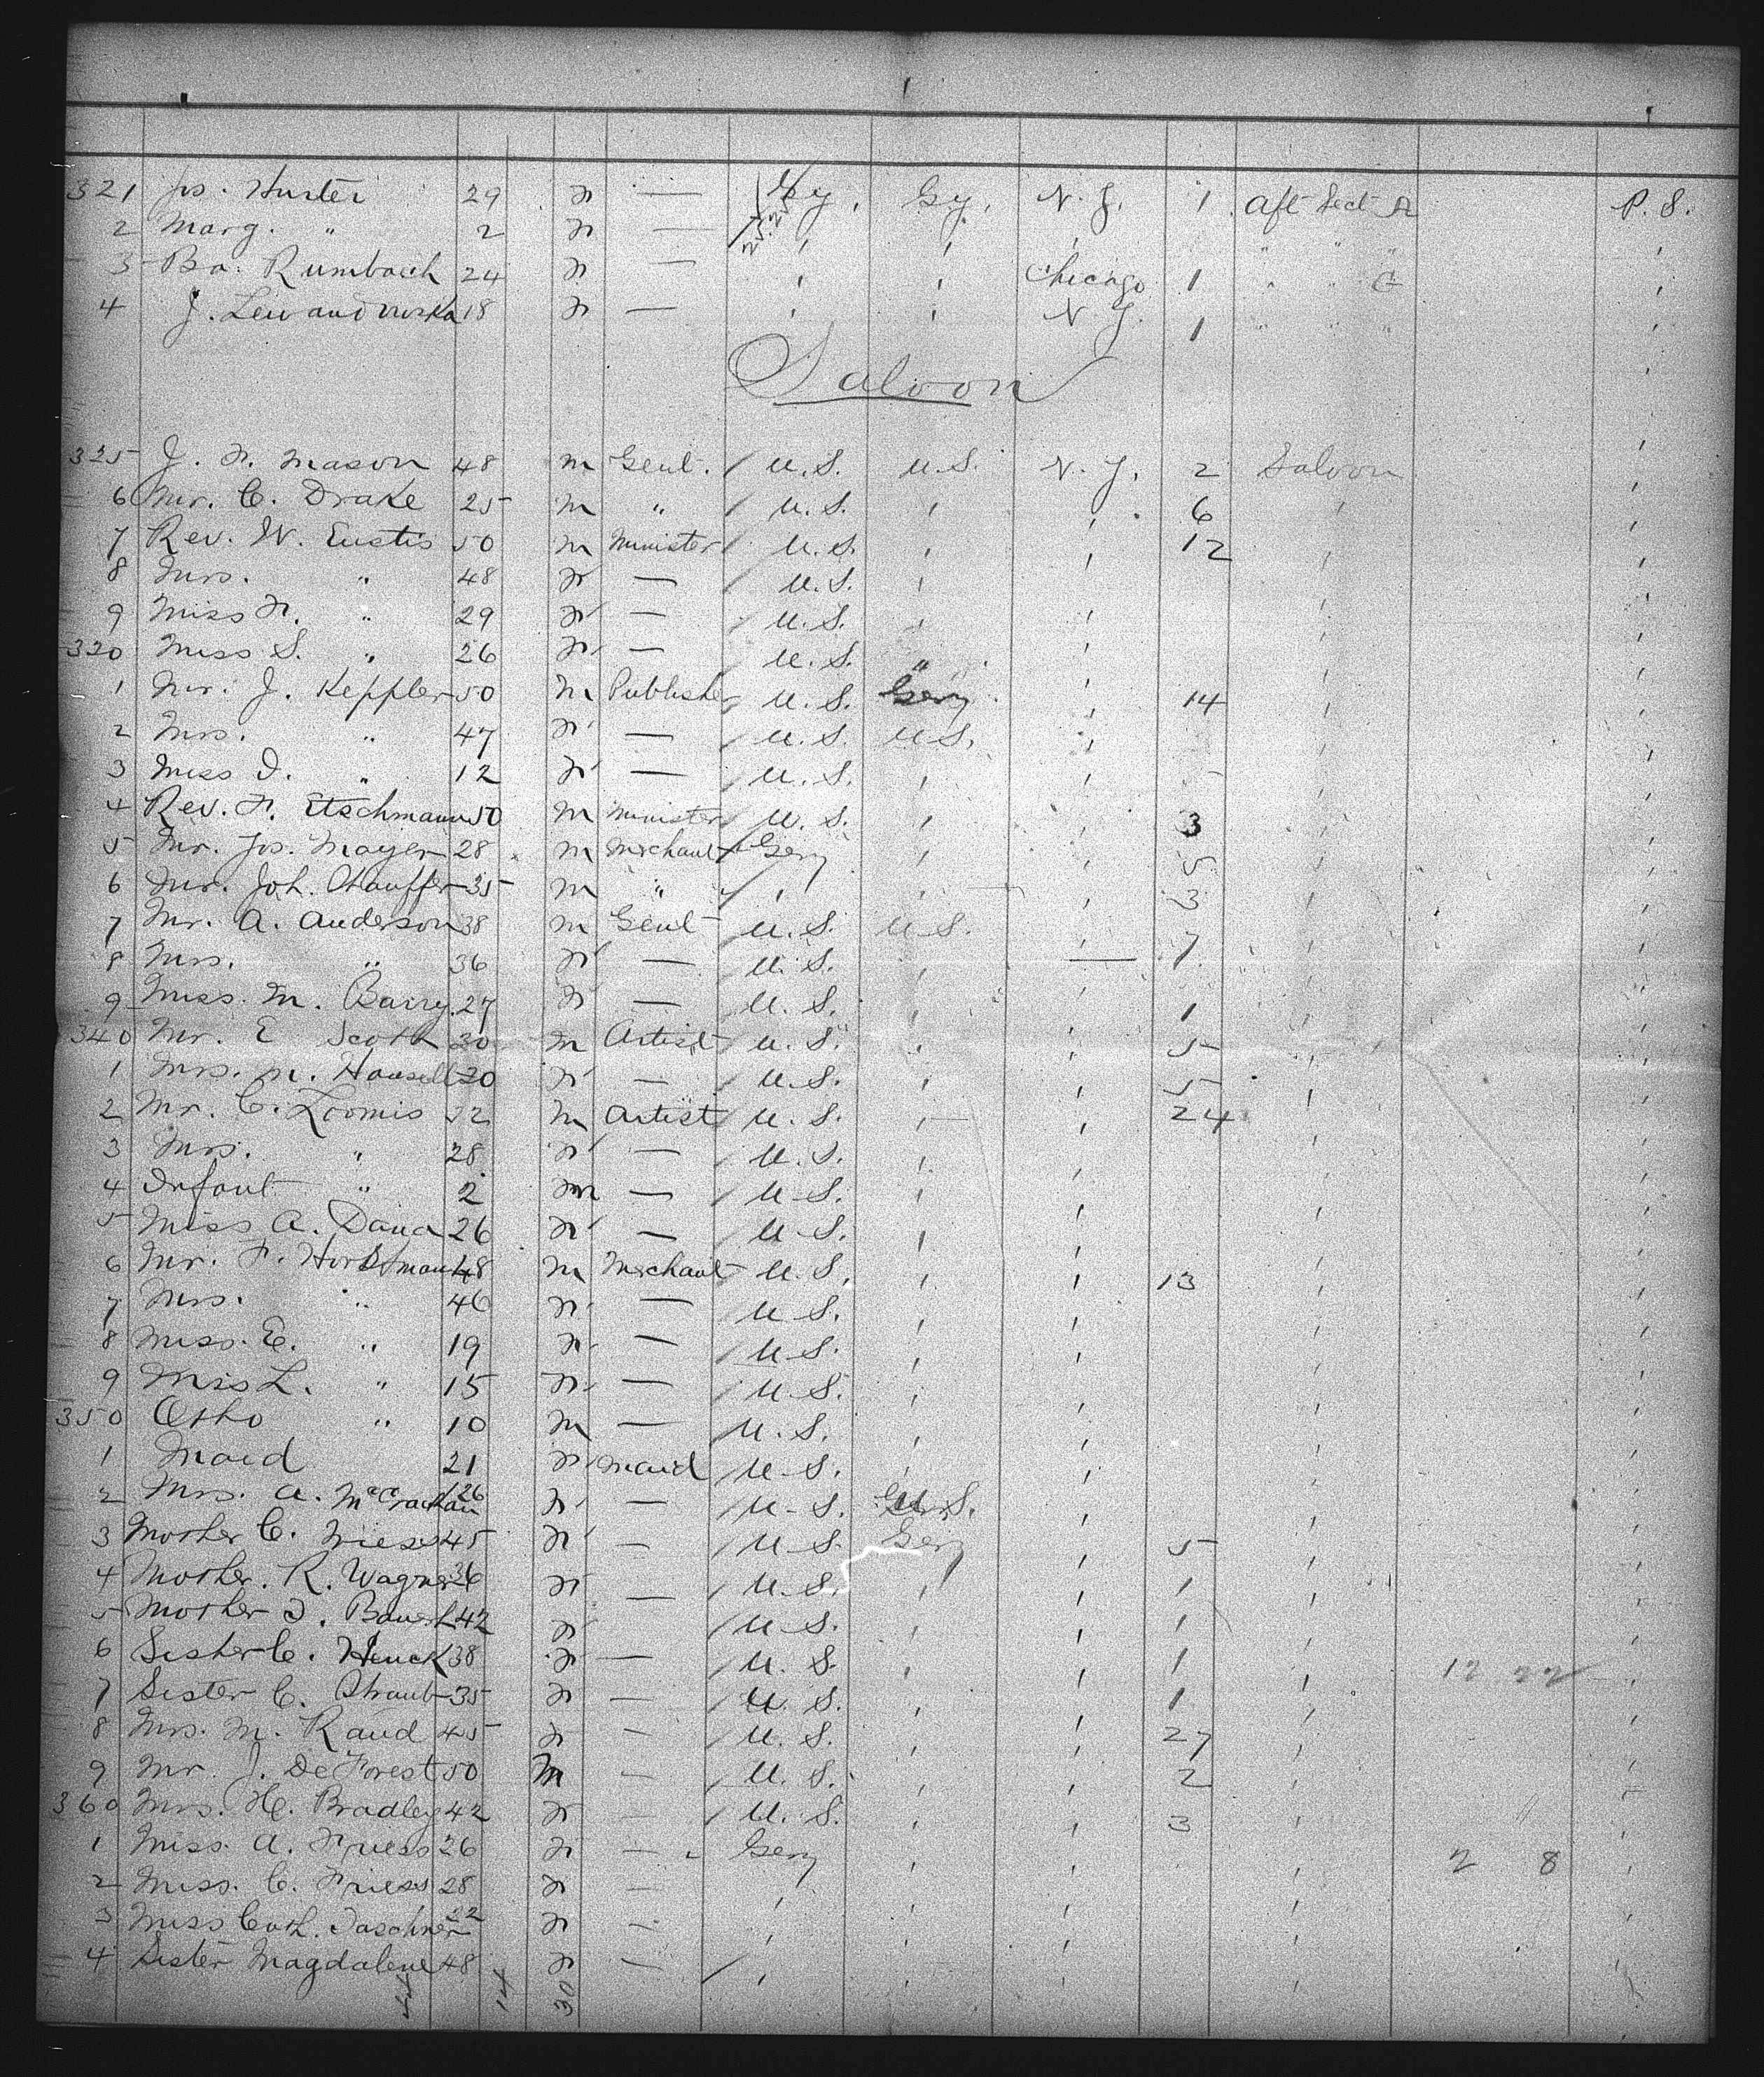 321 Jos. Hurter 29 F — Gy. Gy. N. Y. 1 Aft Sect A P. S.
2 Marg. " 2 F — ' ' ' " " " '
3 Ba. Rumbach 24 F — ' ' Chicago 1 " " C '
4 J. Lewandowska 18 F — ' ' N. Y. 1 " " " '
Saloon
325 J. F. Mason 48 M Gent. / U. S. U. S. N. Y. 2 Saloon '
6 Mr. C. Drake 25 M " / U. S. ' ' 6 ' '
7 Rev. W. Eustis 50 M Minister / U. S. ' ' 12 ' '
8 Mrs. " 48 F — / U. S. ' ' ' '
9 Miss F. " 29 F — / U. S. ' ' ' '
320 Miss S. " 26 F — / U. S. " ' ' '
1 Mr. J. Keppler 50 M Publisher / U. S. Gery ' 14 ' '
2 Mrs. " 47 F — / U. S. U. S. ' ' '
3 Miss I. " 12 F — / U. S. ' ' ' '
4 Rev. F. Etschmann 50 M Minister / U. S. ' ' 3 ' '
5 Mr. Jos. Mayer 28 M Mrchant Gery ' ' 5 ' '
6 Mr. Joh. Stauffer 35 M " / ' ' ' 3 ' '
7 Mr. A. Anderson 38 M Gent / U. S. U. S. ' 7 ' '
8 Mrs. " 36 F — / U. S. ' — 7 ' '
9 Miss. M. Barry. 27 F — / U. S. ' ' 1 ' '
340 Mr. E Scott 30 M Artist / U. S. ' ' 5 ' '
1 Mrs. M. F — / U. S. ' ' 5 ' '
2 Mr. C. Loomis 32 M Artist / U. S. ' ' 24 ' '
3 Mrs. " 28 F — / U. S. ' ' ' '
4 Infant " 2 M — / U. S. ' ' ' '
5 Miss A. Dana 26 F — / U. S. ' ' ' '
6 Mr. F. Horstmann 48 M Mrchant / U. S. ' ' 13 ' '
7 Mrs. " 46 F — / U. S. ' ' ' '
8 Miss. E. " 19 F — / U. S. ' ' ' '
9 Miss L. " 15 F — / U. S. ' ' ' '
350 Otto " 10 M — / U. S. ' ' ' '
1 Maid 21 F Maid / U. S. ' ' ' '
2 Mrs. A. McCrackan 26 F — / U. S. U. S. ' ' '
3 Mother C. 45 F — / U. S. Gery ' 5 ' '
4 Mother. R. Wagner 36 F — / U. S. ' ' 1 ' '
5 Mother I. 42 F / U. S. ' ' 1 ' '
6 Sister C. Henck 38 F — / U. S. ' ' 1 ' 12 22 '
7 Sister C. Straub 35 F — / U. S. ' ' 1 ' '
8 Mrs. M. Rand 45 F — / U. S. ' ' 27 ' '
9 Mr. J. DeForest 50 M — / U. S. ' ' 2 ' '
360 Mrs. H. Bradley 42 F — / U. S. ' ' 3 ' '
1 Miss. A. Friess 26 F — Gery ' ' ' 2 8 '
2 Miss. C. Friess 28 F — ' ' ' ' '
3 Miss Cath. Taschner 22 F — ' ' ' ' '
4 Sister Magdalene 48 F — / ' ' ' ' '
14 30